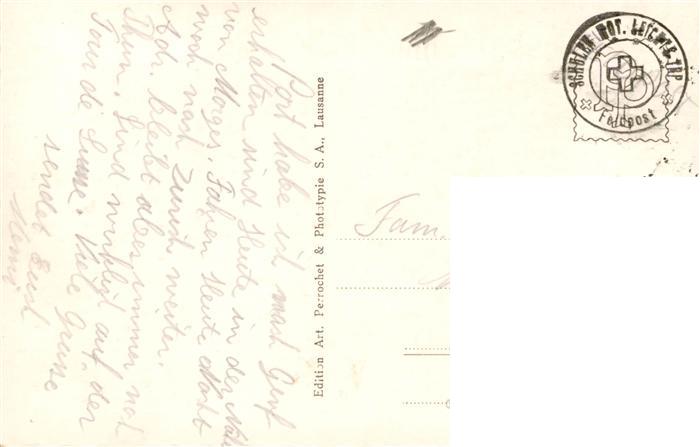 Post habe ich nach Genf
erhalten sind Heute in der Nähe
von Morges. Fahren Heute Nacht
noch nach Zürich weiter.
Adr. bleibt aber immer noch
Thun. Sind wirklich auf der
Tour de Suisse. Viele Grüsse
sendet Euch
Edition Art. Perrochet & Phototypie S. A., Lausanne
MOT. LEICHTE TRP
Feldpost
Fam.